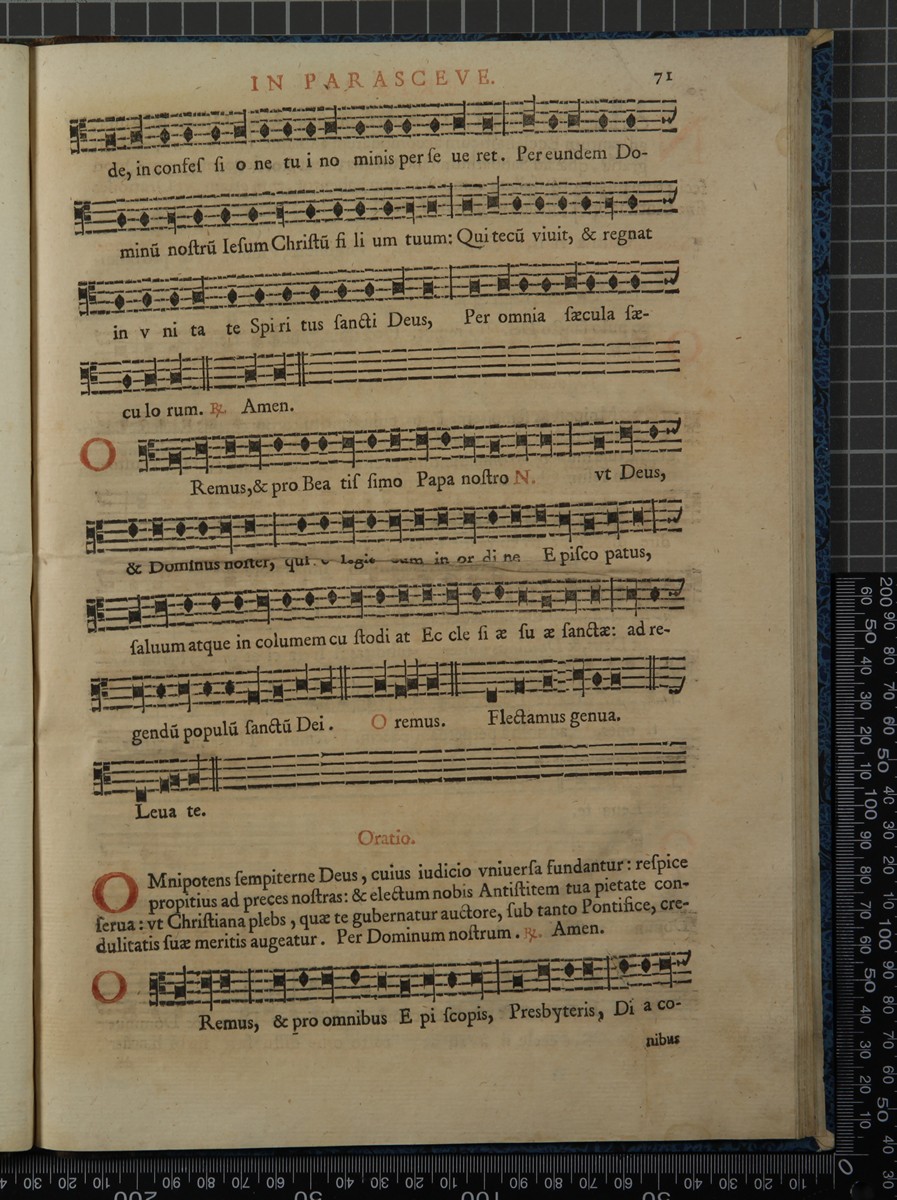 IN PARASCEVE. 71
de, in confeſ ſi o ne tu i no minis per ſe ue ret. Per eundem Do-
minū noſtrū Ieſum Chriſtū fi li um tuum: Qui tecū viuit, & regnat
in v ni ta te Spi ri tus ſancti Deus, Per omnia ſæcula ſæ-
cu lo rum. ℟. Amen.
O Remus, & pro Bea tiſ ſimo Papa noſtro N. vt Deus,
& Dominus noſter, qui in or di ne E piſco patus,
ſaluum atque in columem cu ſtodi at Ec cle ſi æ ſu æ ſanctæ: ad re-
gendū populū ſanctū Dei. O remus. Flectamus genua.
Leua te.
Oratio.
OMnipotens ſempiterne Deus, cuius iudicio vniuerſa fundantur: reſpice
propitius ad preces noſtras: & electum nobis Antiſtitem tua pietate con-
ſerua: vt Chriſtiana plebs, quæ te gubernatur auctore, ſub tanto Pontifice, cre-
dulitatis ſuæ meritis augeatur. Per Dominum noſtrum. ℟. Amen.
O Remus, & pro omnibus E pi ſcopis, Presbyteris, Di a co-
nibus